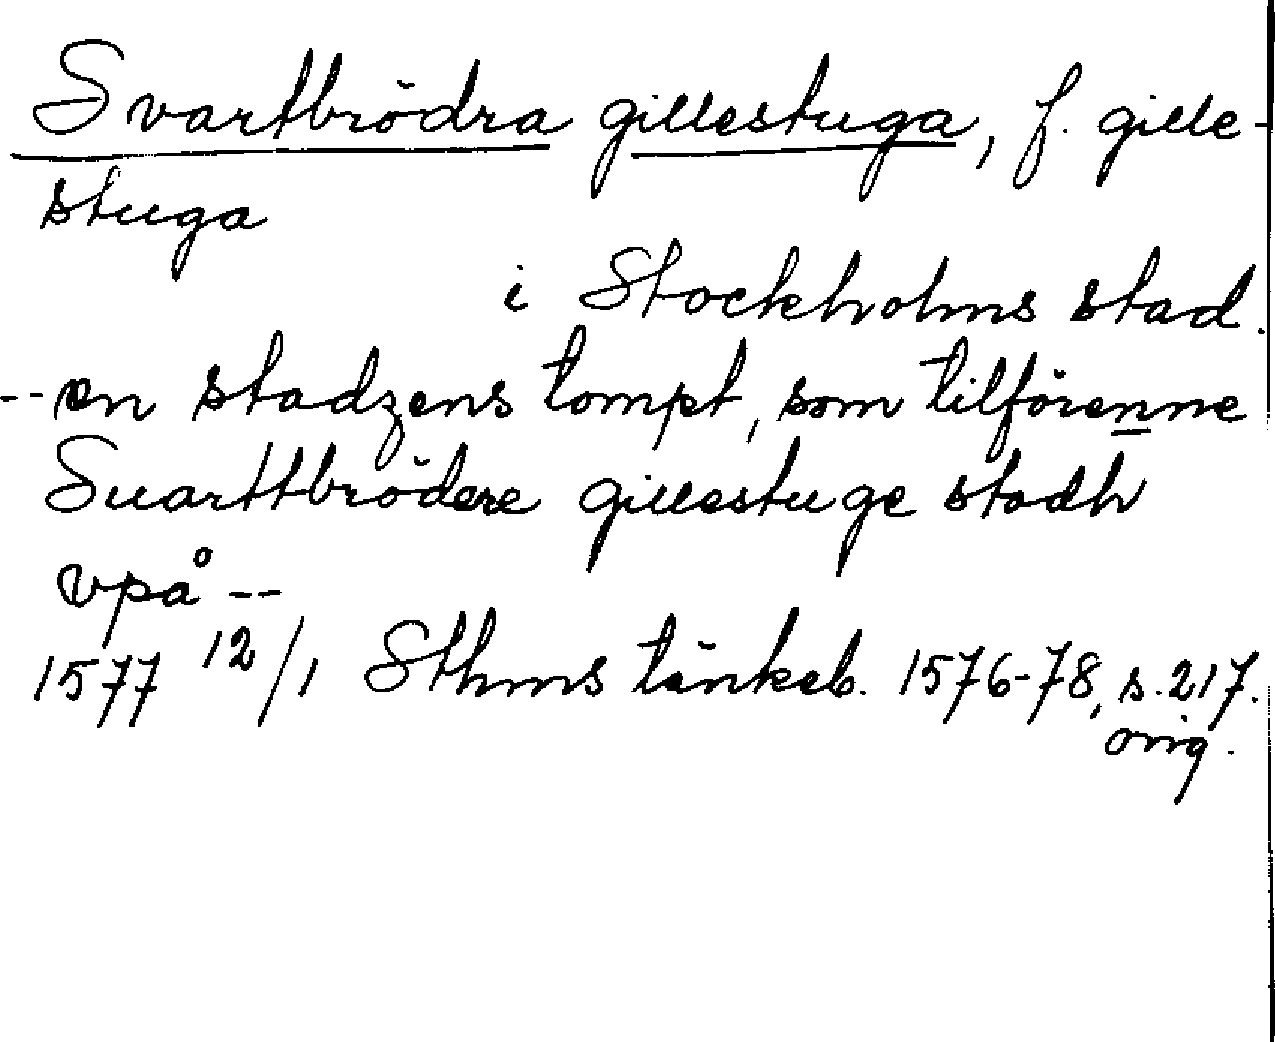 Svartbrödra gillestuga, f. gille-
stuga
i Stockholms stad.
-- en stadzens tompt, som tilförenne
Suarttbrödere gillestuge stodh
vpå --
1577 12/1 Sthms tänkeb. 1576-78, s. 217.
orig.